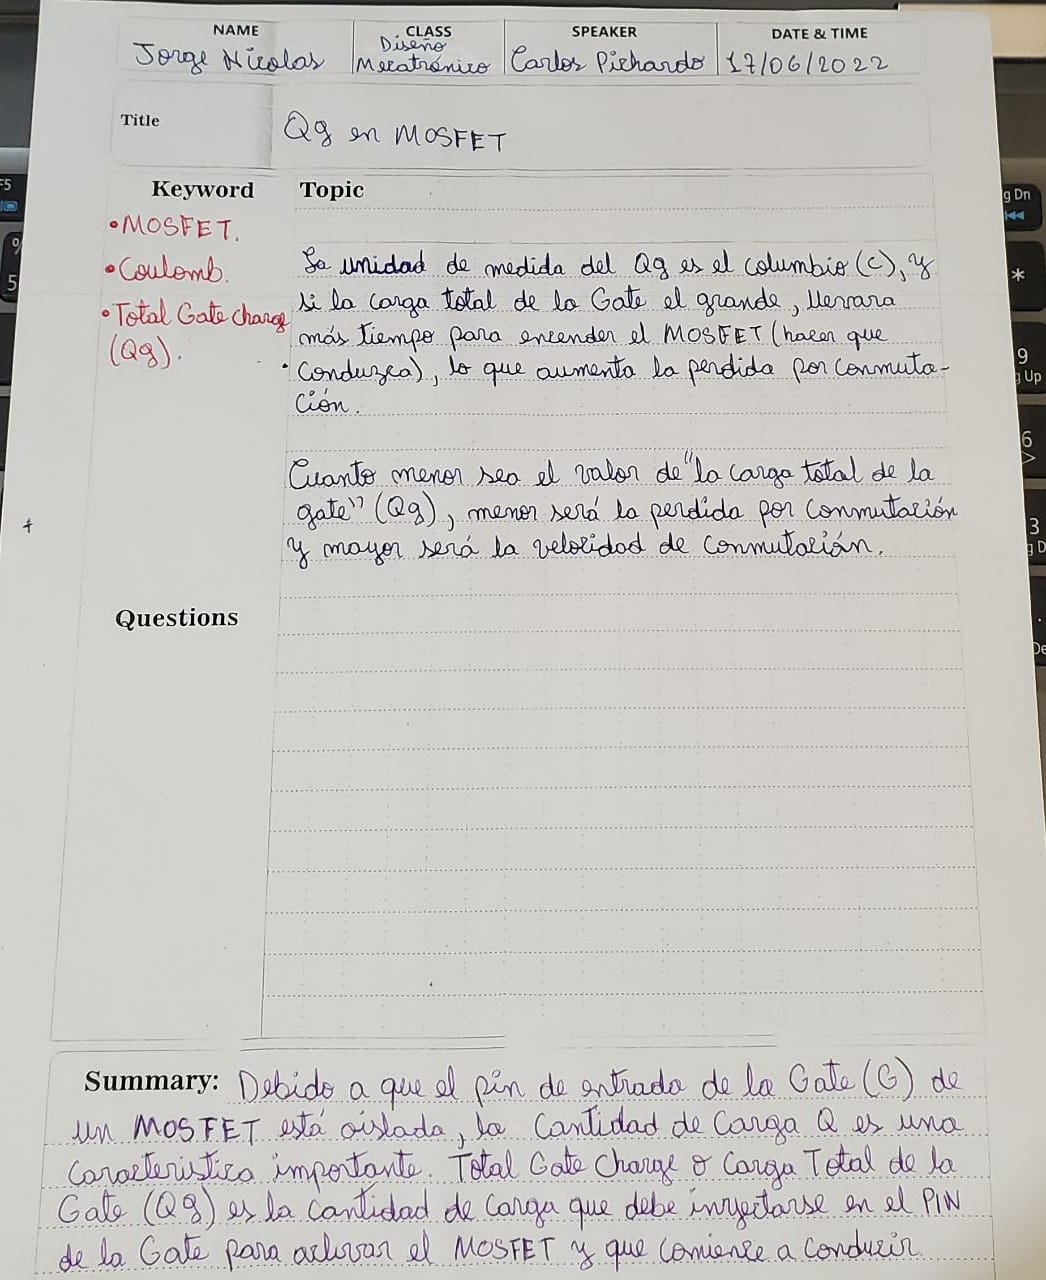 NAME CLASS SPEAKER DATE & TIME
Jorge Nicolas Diseño Mecatrónico Carlos Pichardo 17/06/2022
Title Qg en MOSFET
Keyword Topic
•MOSFET.
•Coulomb.
•Total Gate charge
(Qg).
La unidad de medida del Qg es el columbio (C), y
si la carga total de la Gate el grande, llevara
más tiempo para encender el MOSFET (hacer que
conduzca), lo que aumenta la perdida por conmuta-
ción.
Cuanto menor sea el valor de "la carga total de la
gate" (Qg), menor será la perdida por conmutación
y mayor será la velocidad de conmutación.
Questions
Summary: Debido a que el pin de entrada de la Gate (G) de
un MOSFET está aislada, la Cantidad de Carga Q es una
Caracteristica importante. Total Gate Charge o Carga Total de la
Gate (Qg) es la cantidad de carga que debe inyectarse en el PIN
de la Gate para activar el MOSFET y que comience a conducir.
F5
9
5
g Dn
*
9
g Up
6
>
3
g D
.
De